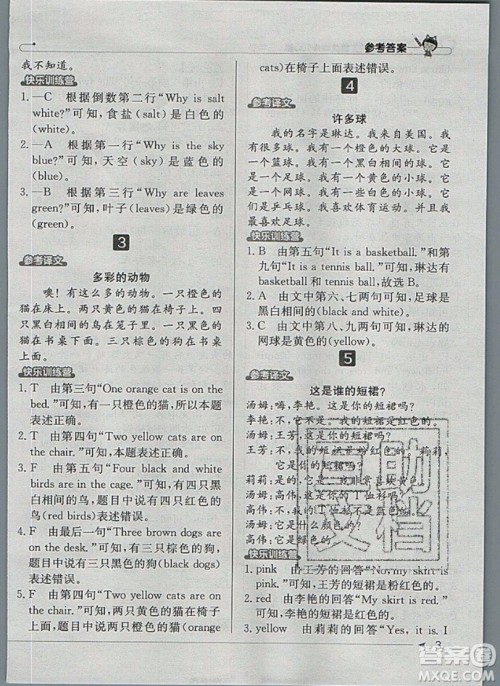 参考答案
我不知道。
快乐训练营
1. —C 根据倒数第二行“Why is salt
white?”可知，食盐(salt)是白色的
(white)。
2. —A 根据第一行“Why is the sky
blue?”可知，天空(sky)是蓝色的
(blue)。
3. —B 根据第三行“Why are leaves
green?”可知，叶子(leaves)是绿色的
(green)。
3
参考译文
多彩的动物
噢！有这么多的动物。一只橙色的
猫在床上。两只黄色的猫在椅子上。
四只黑白相间的鸟在笼子里。三只棕
色的狗在书桌下面。一只粉色的猫在
书桌上面。
快乐训练营
1. T 由第三句“One orange cat is on the
bed.”可知，有一只橙色的猫，所以本题
表述正确。
2. T 由第四句“Two yellow cats are on
the chair.”可知，本题表述正确。
3. F 由第五句“Four black and white
birds are in the cage.”可知，有四只黑
白相间的鸟，
鸟(red birds)表述错误。
4. F 由最后一句“Three brown dogs are
on the desk.”可知，有三只棕色的狗，
所以三只黑色的狗(black dogs)表述
错误。
5. F 由第四句“Two yellow cats are on
the chair.”可知，两只黄色的猫在椅子
上，所以两只橙色的猫(two orange
cats)在椅子上面表述错误。
4
参考译文
许多球
我的名字是琳达。我来自美国。我
有很多球。我有一个橙色的大球。它是
一个篮球。我有一个黑白相间的球。它
是一个足球。我有一个黄色的小球。它
是一个网球。我有一个橙色的小球。它
们是乒乓球。我喜欢体育运动。我
最喜欢足球。
快乐训练营
1. B 由第五句“It is a basketball.”和第
九句“It is a tennis ball.”可知，琳达有
篮球和网球，故选B。
2. A 由文中第六、七两句可知，足球是
黑白相间的(black and white)。
3. C 由文中第八、九两句可知，琳达的
网球是黄色的(yellow)。
5
参考译文
这是谁的短裙？
汤姆：嗨，李艳。这是你的短裙吗？
李艳：不，
汤姆：嗨，王芳。这是你的短裙吗？
王芳：不，
莉莉：
高伟：
汤姆：它是什么颜色的？
高伟：
快乐训练营
1. pink 由王芳的回答“No, my skirt is
pink.”可知，王芳的短裙是粉红色的。
2. red 由李艳的回答“My skirt is red.”
可知，李艳的短裙是红色的。
3. yellow 由莉莉的回答“Yes, it is. I
3